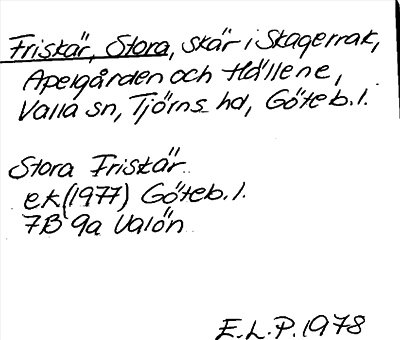 Friskär, Stora, skär i Skagerrak,
Apelgården och Hällene,
Valla sn, Tjörns hd, Göteb. l.
Stora Friskär
ek (1977) Göteb. l.
7B 9a Valön
E.L.P. 1978